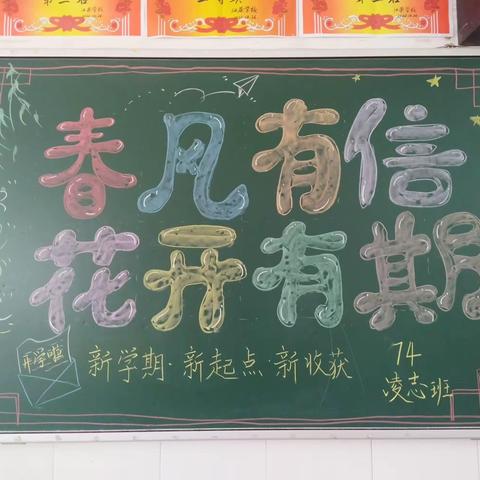 春风有信
花开有期
开学啦
新学期·新起点·新收获
74
凌志班